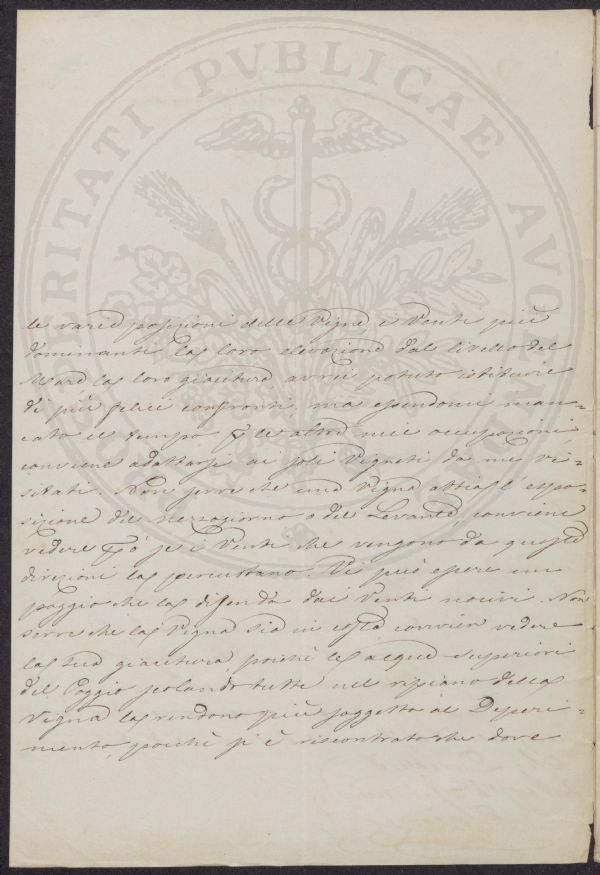 PROSPERITATI PVBLICAE AVGENDAE
le varie posizioni delle Vigne i Venti più
dominanti la loro elevazione dal livello del
Mare la loro giacitura avrei potuto istituire
di più felici confronti, ma essendomi man=
cato il tempo p le altre mie occupazioni,
conviene adattarsi ai soli Vigneti da me vi=
sitati. Non serve che una Vigna abbia l'espo=
sizione del mezzogiorno o del Levante, conviene
vedere però se i Venti che vengono da queste
direzioni la percuotano. Vi può essere un
poggio che la difenda dai Venti nocivi. Non
serve che la Vigna sia in costa convien vedere
la sua giacitura poichè le acque superiori
del Poggio scolando tutte nel ripiano della
Vigna la rendono più soggetta al Deperi=
mento, poichè si è riscontrato che dove